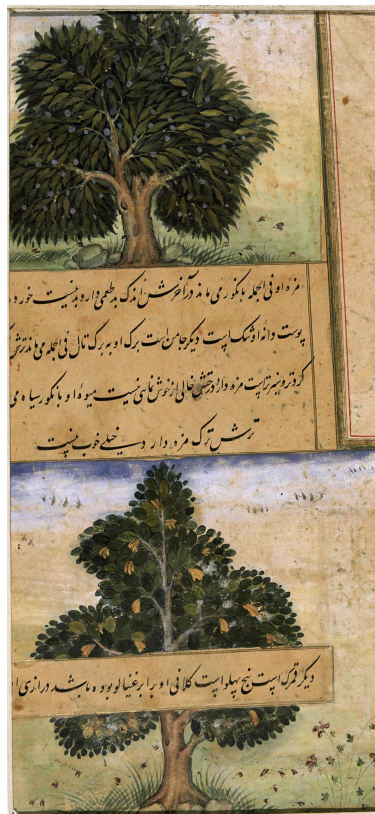 مزه او فی الجمله بانکور می ماند در آخرش اندک بدطعمی دارد بد نیست خور
پوست دانه او تنک است دیکر جامن است برک او به برک تال فی الجمله می ماند
کرد تر و سبزتر است مزه دار درختش خالی از خوش نمای نیست میوۀ او بانکور سیاه می
ترش ترک مزه دارد خیلی خوب نیست
دیکر قمرک است پنج پهلو است کلانی او برابر غینالو بوده باشد درازی